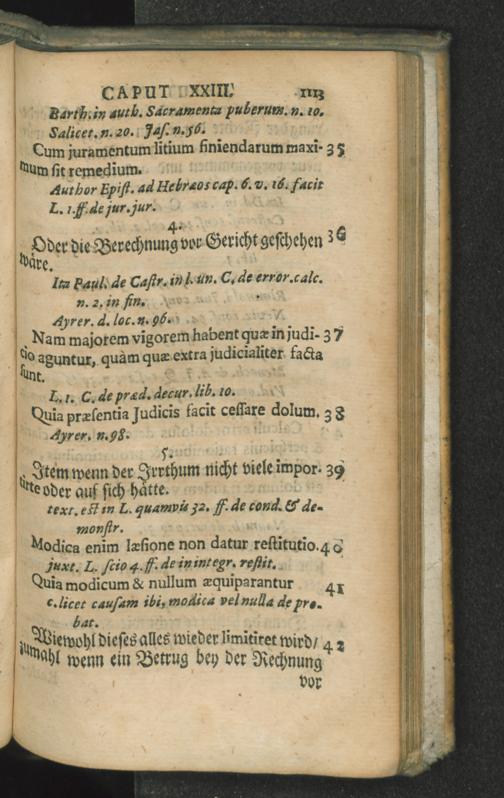 CAPUT XXIII. 1113
Barth. in auth. Sacramenta puberum. n. 10.
Salicet. n. 20. Jaſ. n. 56.
Cum juramentum litium finiendarum maxi- 35
mum ſit remedium.
Author Epiſt. ad Hebræos cap. 6. v. 16. facit
L. 1. ff. de jur. jur.
4.
Oder die Berechnung vor Gericht geſchehen 36
wäre.
Ita Paul. de Caſtr. in l. un. C. de error. calc.
n. 2. in fin.
Ayrer. d. loc. n. 96.
Nam majorem vigorem habent quæ in judi- 37
cio aguntur, quàm quæ extra judicialiter facta
ſunt.
L. 1. C. de præd. decur. lib. 10.
Quia præſentia Judicis facit ceſſare dolum. 38
Ayrer. n. 98.
5.
Item wenn der Irrthum nicht viele impor- 39
tirte oder auf ſich hätte.
text. eſt in L. quamvis 32. ff. de cond. & de-
monſtr.
Modica enim læſione non datur reſtitutio. 40
juxt. L. ſcio 4. ff. de in integr. reſtit.
Quia modicum & nullum æquiparantur 41
c. licet cauſam ibi, modica vel nulla de pro-
bat.
Wiewohl dieſes alles wieder limitiret wird/ 42
zumahl wenn ein Betrug bey der Rechnung
vor